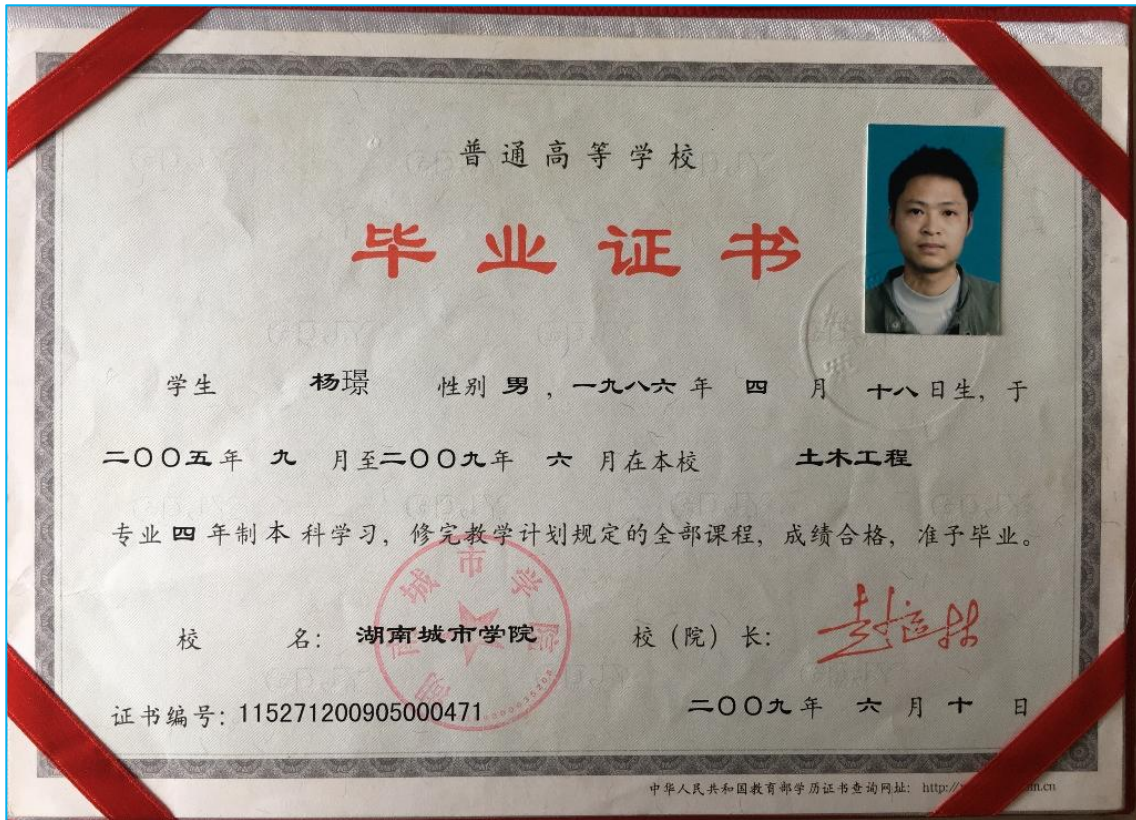 普通高等学校
毕业证书
学生 杨璟 性别 男，一九八六 年 四 月 十八 日生，于
二〇〇五年 九 月至二〇〇九年 六 月在本校 土木工程
专业 四 年制 本 科学习，修完教学计划规定的全部课程，成绩合格，准予毕业。
校 名： 湖南城市学院 校（院）长：
湖南城市学院
证书编号：115271200905000471 二〇〇九 年 六 月 十 日
中华人民共和国教育部学历证书查询网址：http://